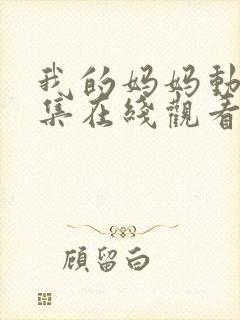 我的妈妈動
集在綫觀看
顧留白